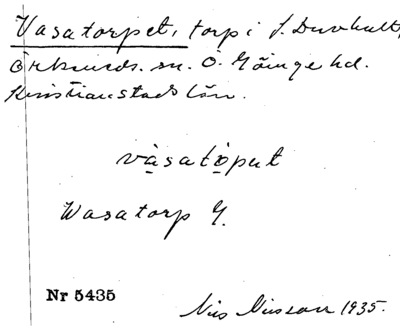 Vasatorpet, torp i S. Duvhult,
Örkeneds. sn. Ö. Göinge hd.
Kristianstads län.
vàsatòput
Wasatorp G.
Nr 5435
Nils Nilsson 1935.